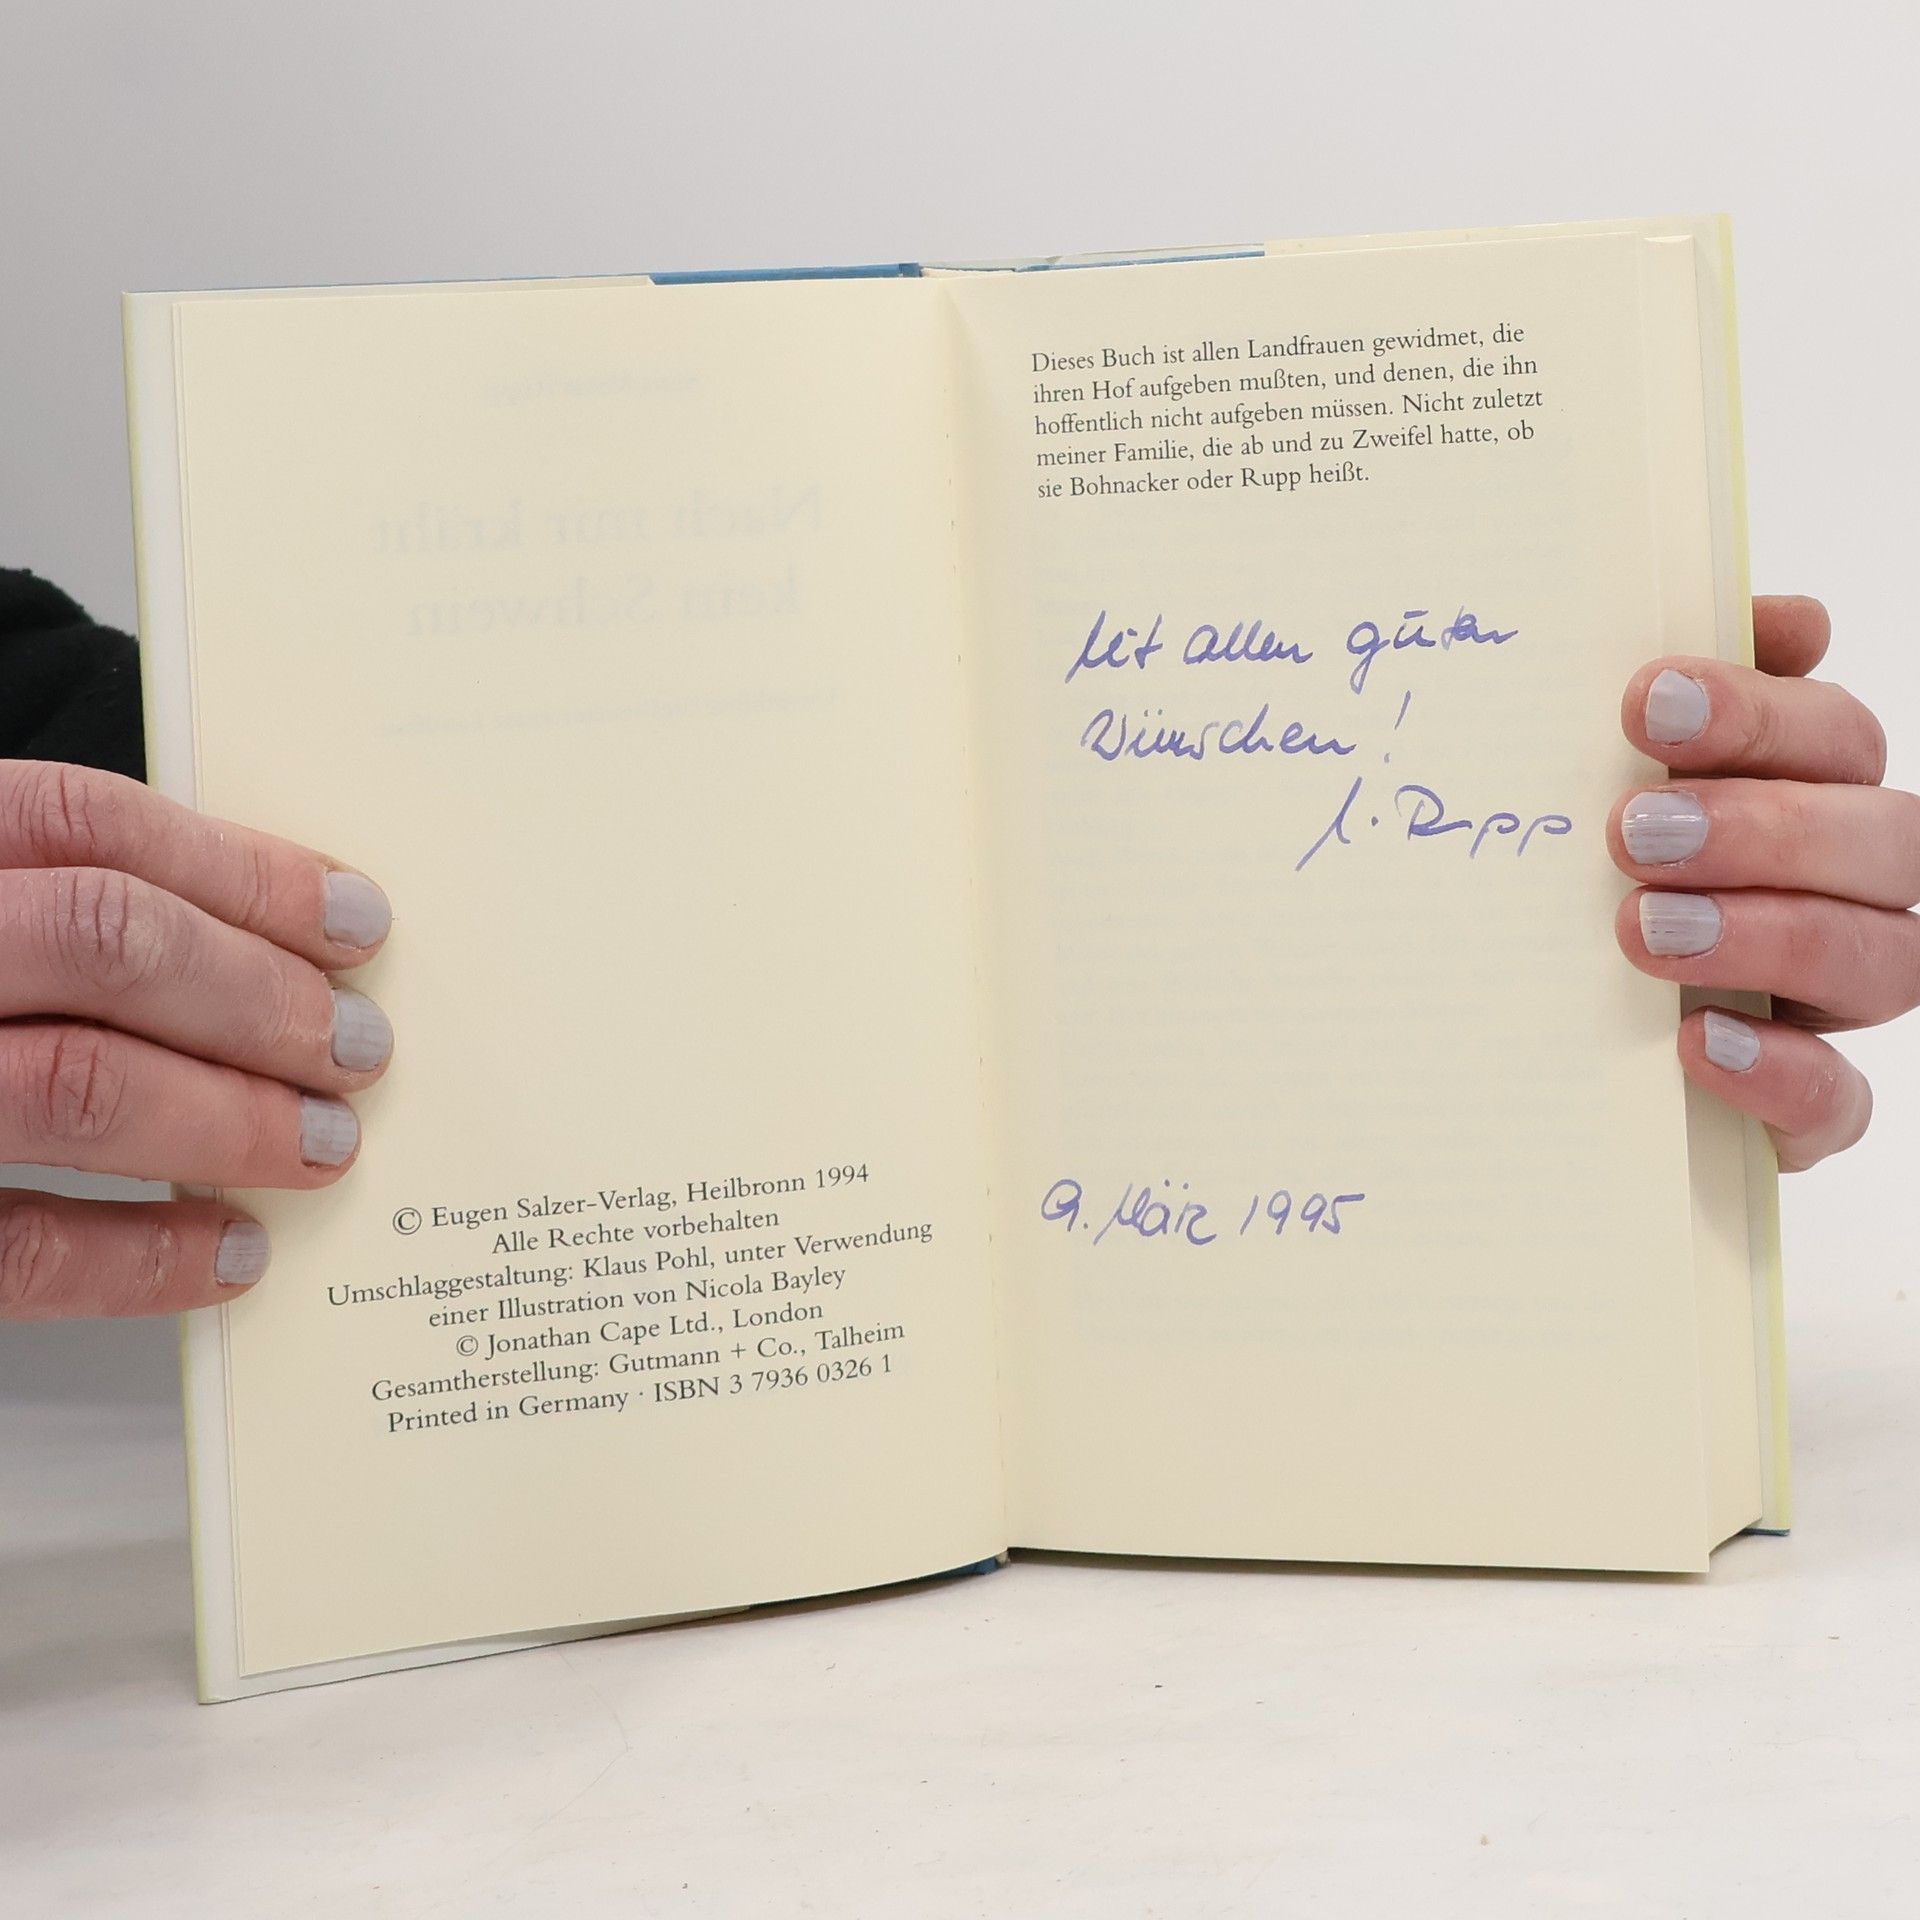 Nach mir kräht
kein Schwein
© Eugen Salzer-Verlag, Heilbronn 1994
Alle Rechte vorbehalten
Umschlaggestaltung: Klaus Pohl, unter Verwendung
einer Illustration von Nicola Bayley
© Jonathan Cape Ltd., London
Gesamtherstellung: Gutmann + Co., Talheim
Printed in Germany · ISBN 3 7936 0326 1
Dieses Buch ist allen Landfrauen gewidmet, die
ihren Hof aufgeben mußten, und denen, die ihn
hoffentlich nicht aufgeben müssen. Nicht zuletzt
meiner Familie, die ab und zu Zweifel hatte, ob
sie Bohnacker oder Rupp heißt.
Mit allen guten
Wünschen!
Rupp
9. März 1995